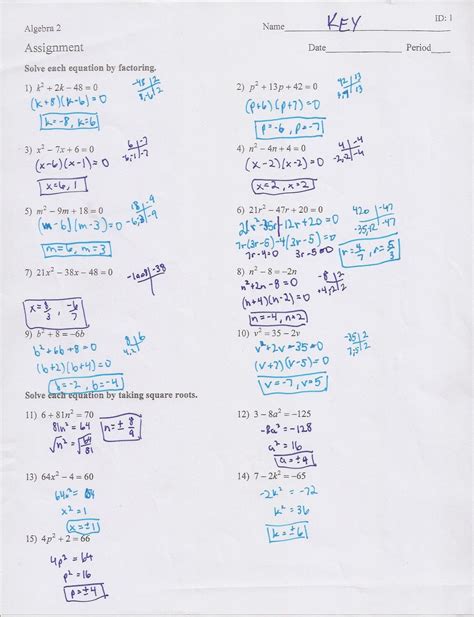 ID: 1
Algebra 2
Name KEY
Assignment
Date Period
Solve each equation by factoring.
1) k² + 2k − 48 = 0
-48 | 2
8,-6 | 2
(k+8)(k-6)=0
k=-8, k=6
2) p² + 13p + 42 = 0
42 | 13
(p+6)(p+7)=0
p=-6, p=-7
3) x² − 7x + 6 = 0
6 | -7
-6,-1 | -7
(x-6)(x-1)=0
x=6, 1
4) n² − 4n + 4 = 0
4 | -4
-2,-2 | -4
(x-2)(x-2)=0
x=2, x=2
5) m² − 9m + 18 = 0
18 | -9
-6,-3 | -9
(m-6)(m-3)=0
m=6, m=3
6) 21r² − 47r + 20 = 0
420 | -47
-35,-12 | -47
21r²-35r-12r+20=0
7r(3r-5)-4(3r-5)=0
7r-4=0 3r-5=0
r=4/7, r=5/3
7) 21x² − 38x − 48 = 0
-1008 | -38
x=8/3, -6/7
8) n² − 8 = −2n
-8 | 2
+4,-2 | 2
n²+2n-8=0
(n+4)(n-2)=0
n=-4, n=2
9) b² + 8 = −6b
8 | 6
4,2
b²+6b+8=0
(b+2)(b+4)=0
b=-2, b=-4
10) v² = 35 − 2v
-35 | 2
v²+2v-35=0
(v+7)(v-5)=0
v=-7, v=5
Solve each equation by taking square roots.
11) 6 + 81n² = 70
81n²=64
√n²=√64/81
n=± 8/9
12) 3 − 8a² = −125
-8a²=-128
a²=16
a=±4
13) 64x² − 4 = 60
64x²=64
x²=1
x=±1
14) 7 − 2k² = −65
-2k²=-72
k²=36
k=±6
15) 4p² + 2 = 66
4p²=64
p²=16
p=±4